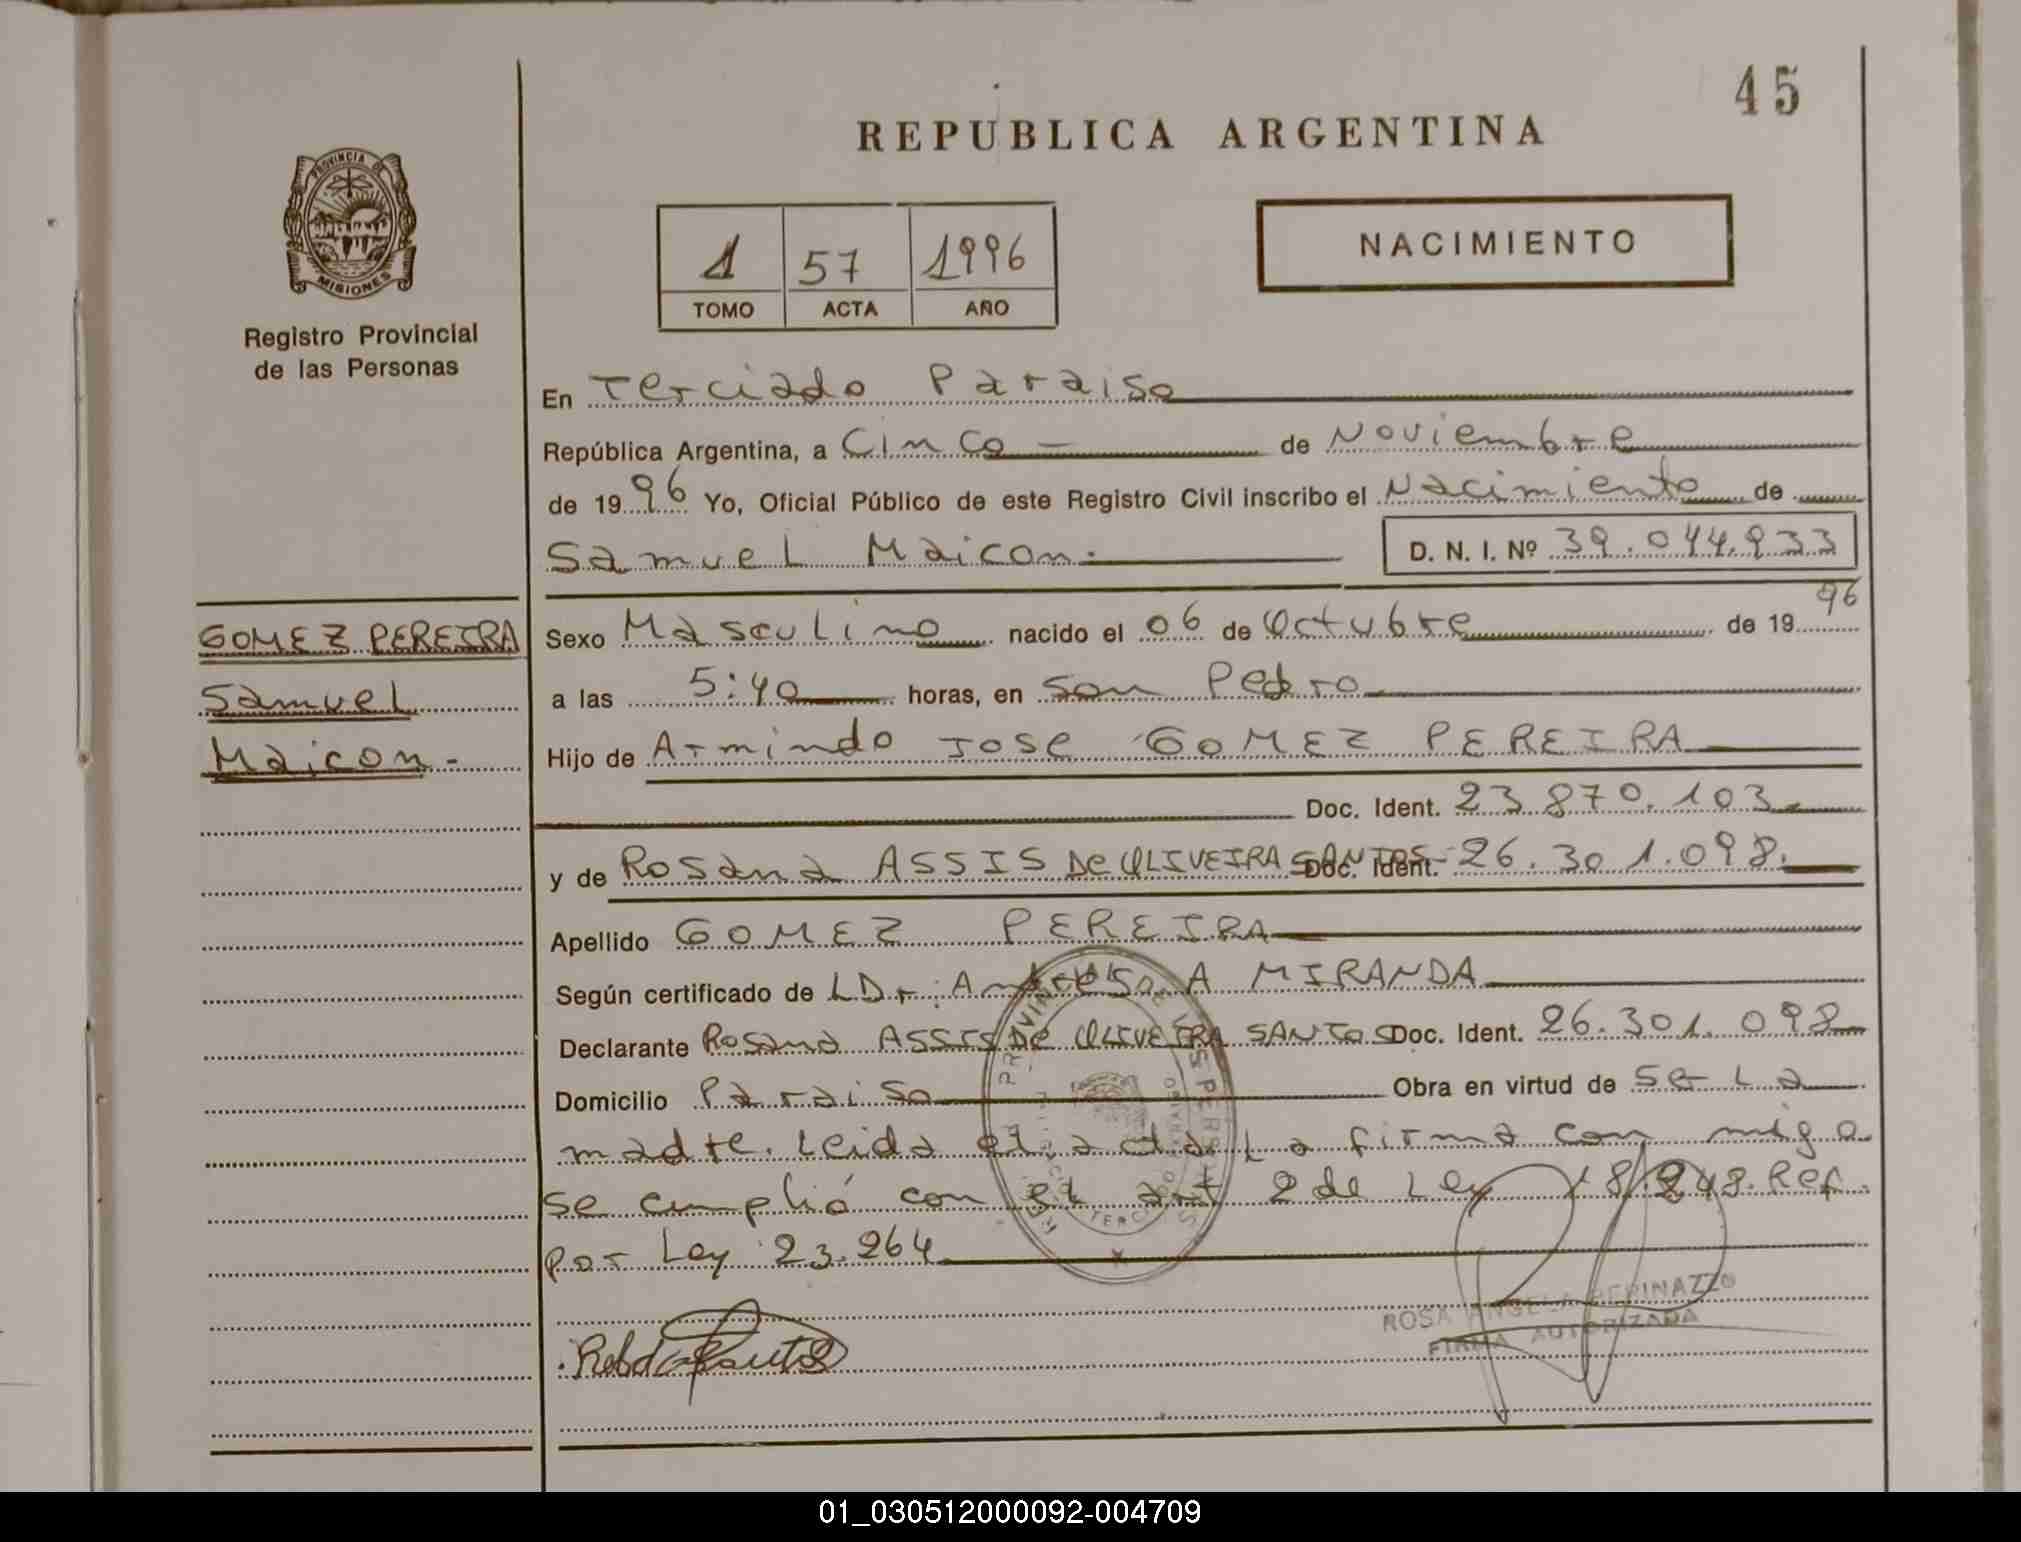 45
REPUBLICA ARGENTINA
PROVINCIA DE
MISIONES
Registro Provincial
de las Personas
1 57 1996
TOMO ACTA AÑO
NACIMIENTO
En Terciado Paraiso
República Argentina, a Cinco de Noviembre
de 1996 Yo, Oficial Público de este Registro Civil inscribo el Nacimiento de
Samuel Maicon. D. N. I. Nº 39.044.933
GOMEZ PEREIRA
Samuel
Maicon.-
Sexo Masculino nacido el 06 de Octubre de 1996
a las 5:40 horas, en San Pedro
Hijo de Armindo Jose GOMEZ PEREIRA
Doc. Ident. 23.870.103.
y de Rosana ASSIS De OLIVEIRA SANTOS- Doc. Ident. 26.301.098.
Apellido GOMEZ PEREIRA
Según certificado de LDr. A MIRANDA
Declarante Rosana ASSIS De OLIVEIRA SANTOS Doc. Ident. 26.301.098
Domicilio Paraiso Obra en virtud de Ser La
madre. Leida el acta La firma con migo
se cumplió con el art 2 de Ley 18.248. Ref.
por Ley 23.264
ROSA ANGELA PEPINAZZO
FIRMA AUTORIZADA
01_030512000092-004709